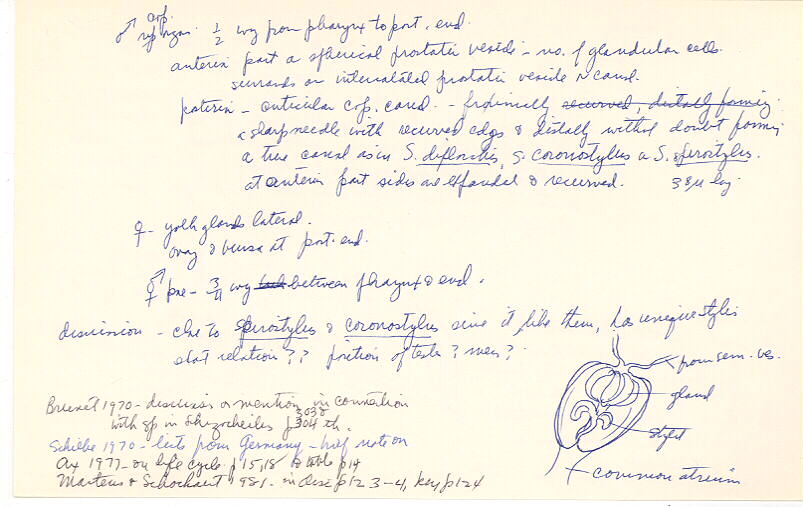 ♂ cop. organ. 1/2 way from pharynx to post. end.
anterior part a spherical prostatic vesicle - no. of glandular cells
surrounds or intercalated prostatic vesicle canal.
posterior - cuticular cop. canal. - proximally recurved, distally forming
a sharp needle with recurved edges & distally without doubt forming
a true canal as in S. , S. coronostylus & S. spirostylus.
at anterior part sides are expanded & recurved. 38μ long
♀ - yolk glands lateral.
ovary & bursa at post. end.
pore - 3/4 way between pharynx & end.
discussion - close to spirostylus & coronostylus since it like them, has unique stylis
relation?? position of testes?
from sem. ves.
gland
stylet
common atrium
Brunet 1970 - discusses or mention in connection
with sp in p 3038
304 th.
Schilke 1970 - lists from Germany - brief note on
Ax 1977 - on life cycle p 15, 18 & table p 14
Martens & Schockaert 1981. in disc p 123-4, key p 124